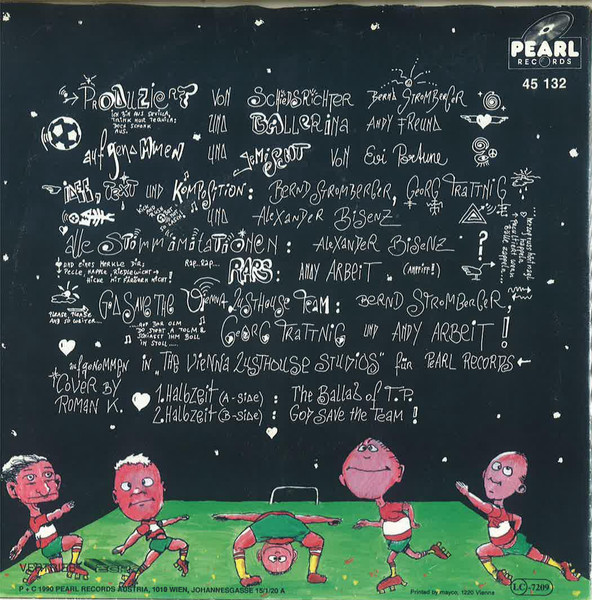 PEARL
RECORDS
45 132
PRODUZiERT VON SCHiEDSRiCHTER BERND STROMBERGER
UND BALLERiNA ANDY FREUND
aufgenommen UND gemischt VON Evi Portune
iDEE, TEXT UND KOMPOSiTiON: BERND STROMBERGER, GEORG TRATTNiG
UND ALEXANDER BiSENZ
alle STiMMiMiTATiONEN: ALEXANDER BiSENZ
UND EiNES MERKLE DIR:
RAP... RAP...
RAPS: ANDY ARBEiT. (AMPFiFF!)
PLEASE, PLEASE
AND SO WEITER...
GOD SAVE THE Vienna LUSTHOUSE TEAM: BERND STROMBERGER,
GEORG TRATTNiG UND ANDY ARBEiT!
aufgenommen in "THE ViENNA LUSTHOUSE STUDiOS" für PEARL RECORDS
COVER BY
ROMAN K.
1. HalbzEiT (A-SiDE): THE BALLAD OF T.P.
2. HalbzEiT (B-SiDE): GOD SAVE THE TEAM!
VERTRIEB
P + C 1990 PEARL RECORDS AUSTRIA, 1010 WIEN, JOHANNESGASSE 15/1/20 A
Printed by mayco, 1220 Vienna
LC-7209